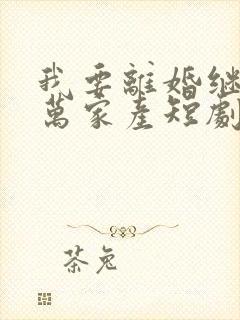 我要離婚继
萬家產短劇
茶兔